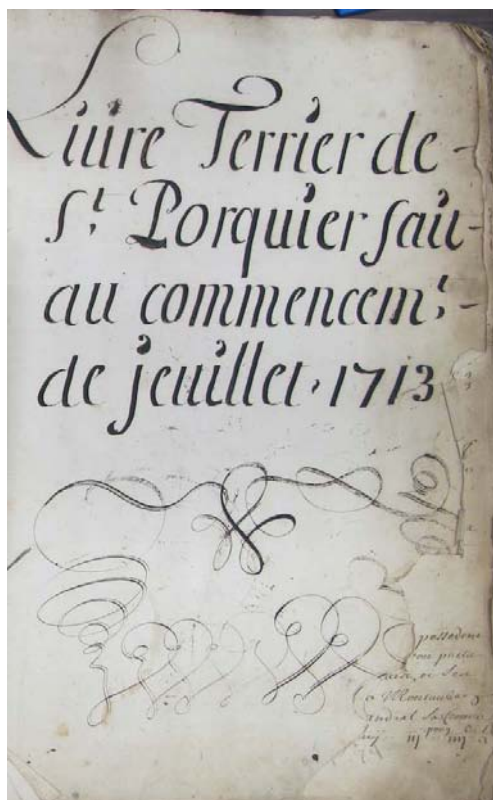 Liure Terrier de-
St Porquier fait-
au commencemt-
de jeuillet, 1713
possedent
a Montauban